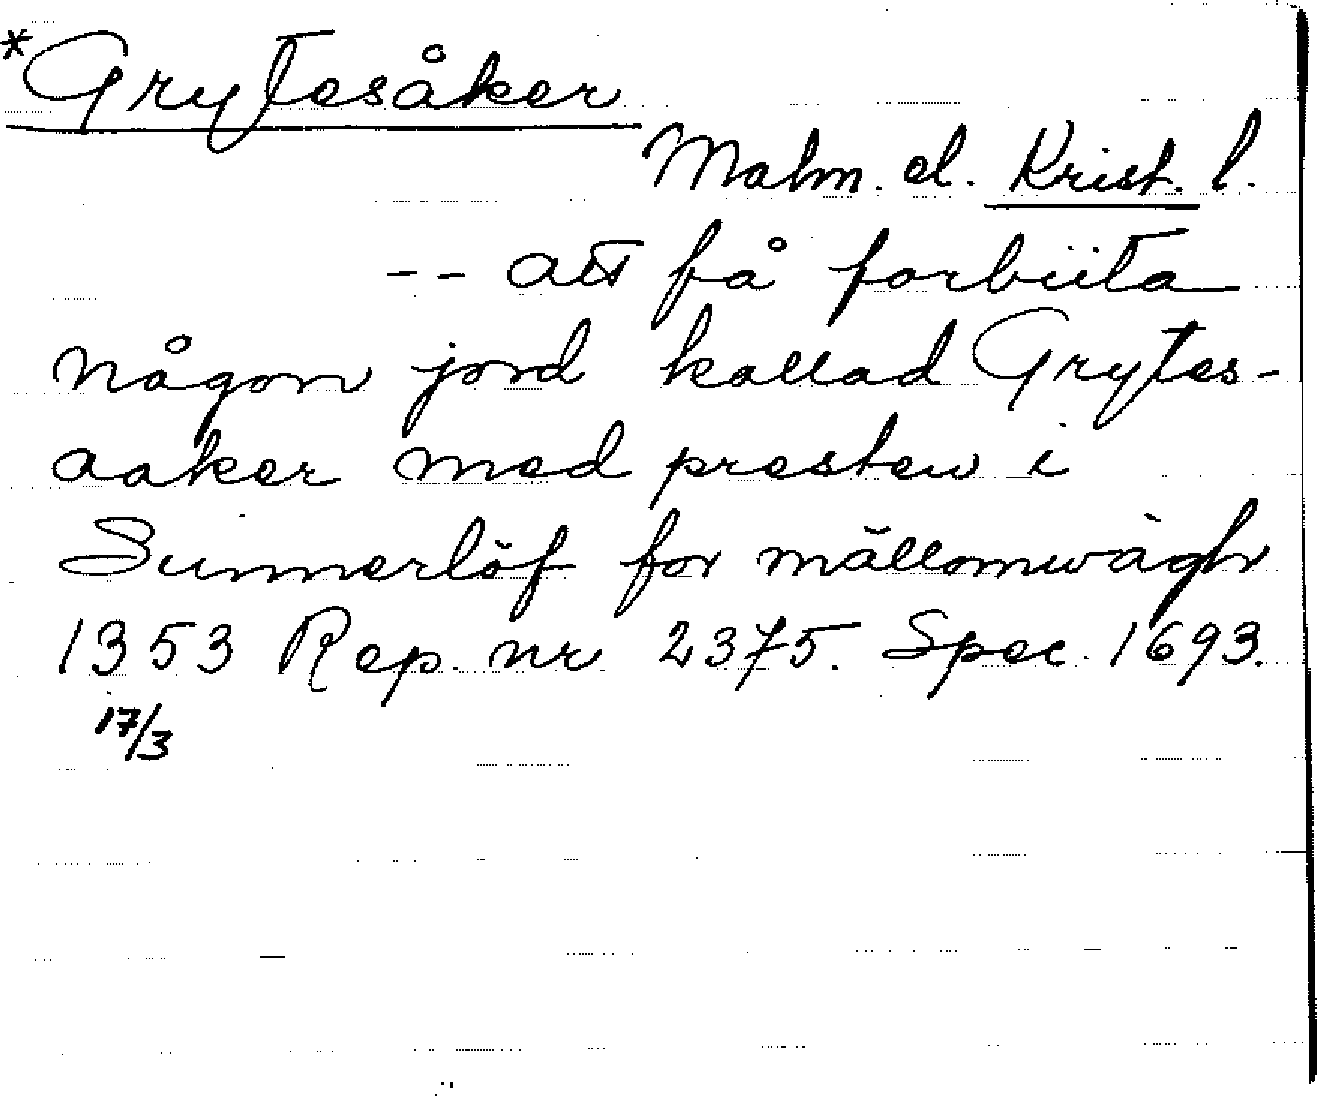 *Grytesåker
Malm. el. Krist. l.
-- att få forbiita
någon jord kallad Grytes-
aaker med presten i
Sunnerlöf for mällomwägh
1353 Rep. nr 2375. Spec. 1693.
17/3